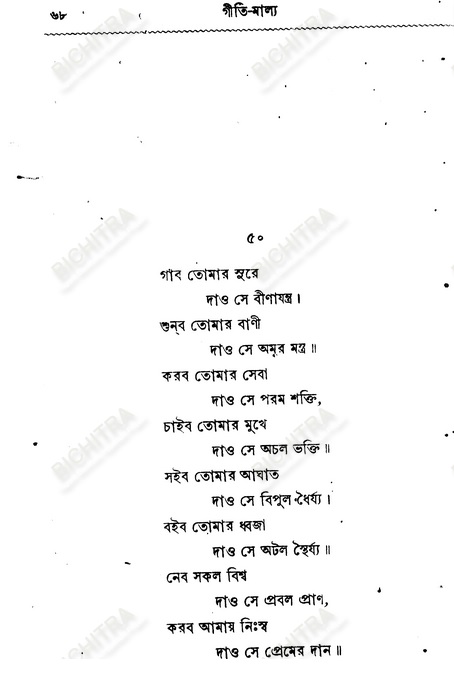 ৬৮
গীতি-মাল্য
৫০
গাব তোমার সুরে
দাও সে বীণাযন্ত্র।
শুন্‌ব তোমার বাণী
দাও সে অমর মন্ত্র॥
করব তোমার সেবা
দাও সে পরম শক্তি,
চাইব তোমার মুখে
দাও সে অচল ভক্তি॥
সইব তোমার আঘাত
দাও সে বিপুল ধৈর্য্য।
বইব তোমার ধ্বজা
দাও সে অটল স্থৈর্য্য॥
নেব সকল বিশ্ব
দাও সে প্রবল প্রাণ,
করব আমায় নিঃস্ব
দাও সে প্রেমের দান॥
BICHITRA
BICHITRA
BICHITRA
BICHITRA
BICHITRA
BICHITRA
BICHITRA
BICHITRA